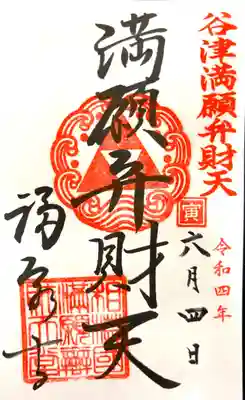 谷津満願弁財天
寅
令和四年
六月四日
満願弁財天
福泉寺